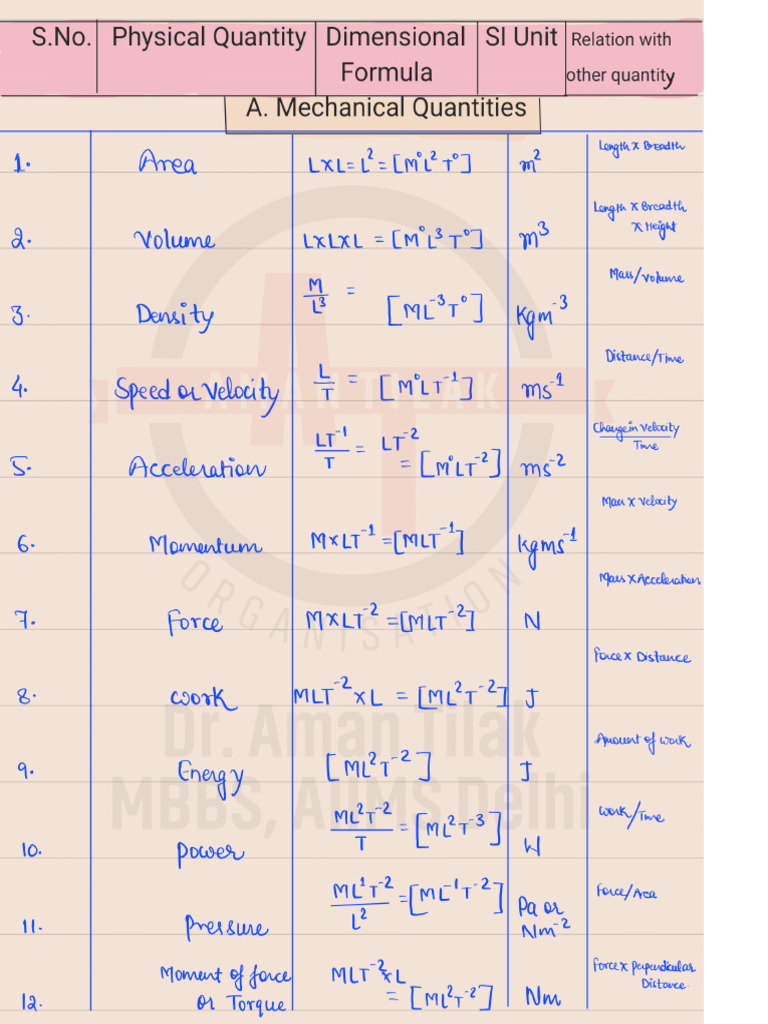 S.No. Physical Quantity Dimensional Formula SI Unit Relation with other quantity
A. Mechanical Quantities
1. Area L×L = L² = [M⁰L²T⁰] m² Length × Breadth
2. Volume L×L×L = [M⁰L³T⁰] m³ Length × Breadth × Height
3. Density M/L³ = [ML⁻³T⁰] Kgm⁻³ Mass/Volume
4. Speed or Velocity L/T = [M⁰LT⁻¹] ms⁻¹ Distance/Time
5. Acceleration LT⁻¹/T = LT⁻² = [M⁰LT⁻²] ms⁻² Change in Velocity/Time
6. Momentum M×LT⁻¹ = [MLT⁻¹] kgms⁻¹ Mass × Velocity
7. Force M×LT⁻² = [MLT⁻²] N Mass × Acceleration
8. Work MLT⁻² × L = [ML²T⁻²] J Force × Distance
9. Energy [ML²T⁻²] J Amount of work
10. Power ML²T⁻²/T = [ML²T⁻³] W Work/Time
11. Pressure ML¹T⁻²/L² = [ML⁻¹T⁻²] Pa or Nm⁻² Force/Area
12. Moment of force or Torque MLT⁻² × L = [ML²T⁻²] Nm Force × Perpendicular Distance
AMAN TILAK
ORGANISATION
Dr. Aman Tilak
MBBS, AIIMS Delhi